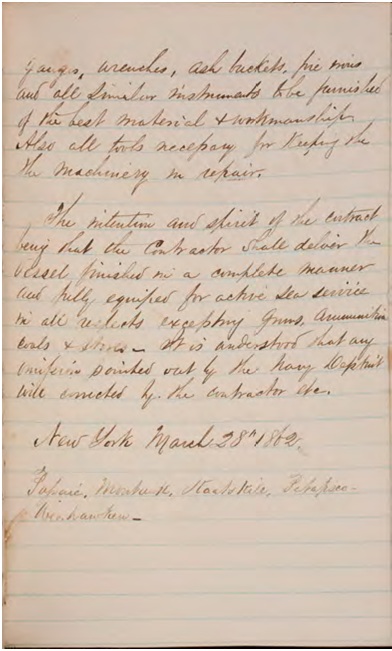 gauges, wrenches, ash buckets, fire irons
and all similar instruments to be furnished
of the best material & workmanship
Also all tools necessary for keeping the
the machinery in repair.
The intention and spirit of the contract
being that the Contractor shall deliver the
vessel finished in a complete manner
and fully equiped for active sea service
in all respects excepting Guns, Ammunition
coals & stores – It is understood that any
omission pointed out by the Navy Deptmt
will corrected by the contractor &c.
New York March 28th 1862.
Passaic, Montauk, Kaatskill, Patapsco –
Weehawken –